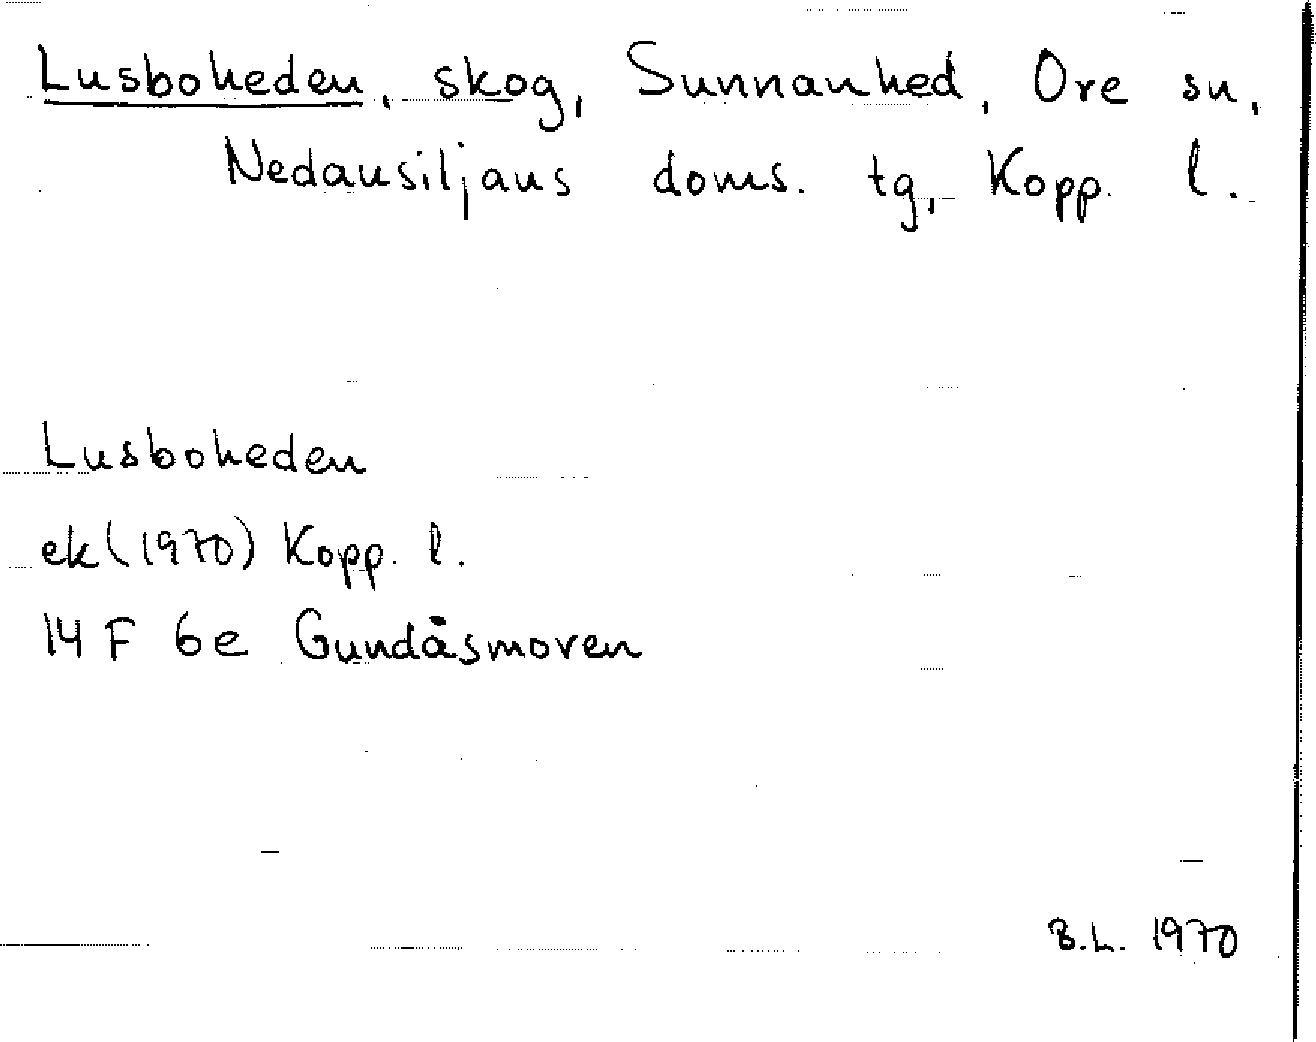 Lusboheden, skog, Sunnanhed, Ore sn,
Nedansiljans doms. tg, Kopp. l.
Lusboheden
ek (1970) Kopp. l.
14 F 6e Gundåsmoren
B.L. 1970